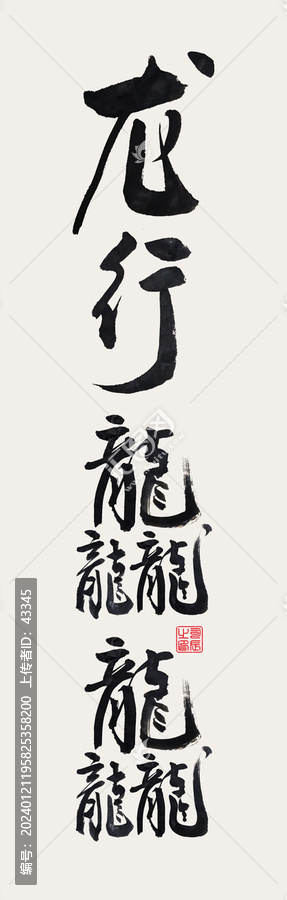 龙行龘龘
编号:20240121195825358200 上传者ID:43345